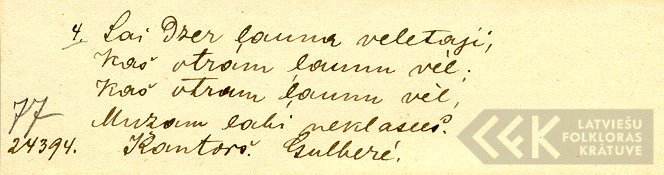 4. Lai Dzer ļauna veletaji,
Kaš otrám ļaunu vēl;
Kaš otram ļaunu vēl,
Muzam labi neklasees.
77
24394. Kantorš. Gulberē.
LATVIEŠU
FOLKLORAS
KRĀTUVE